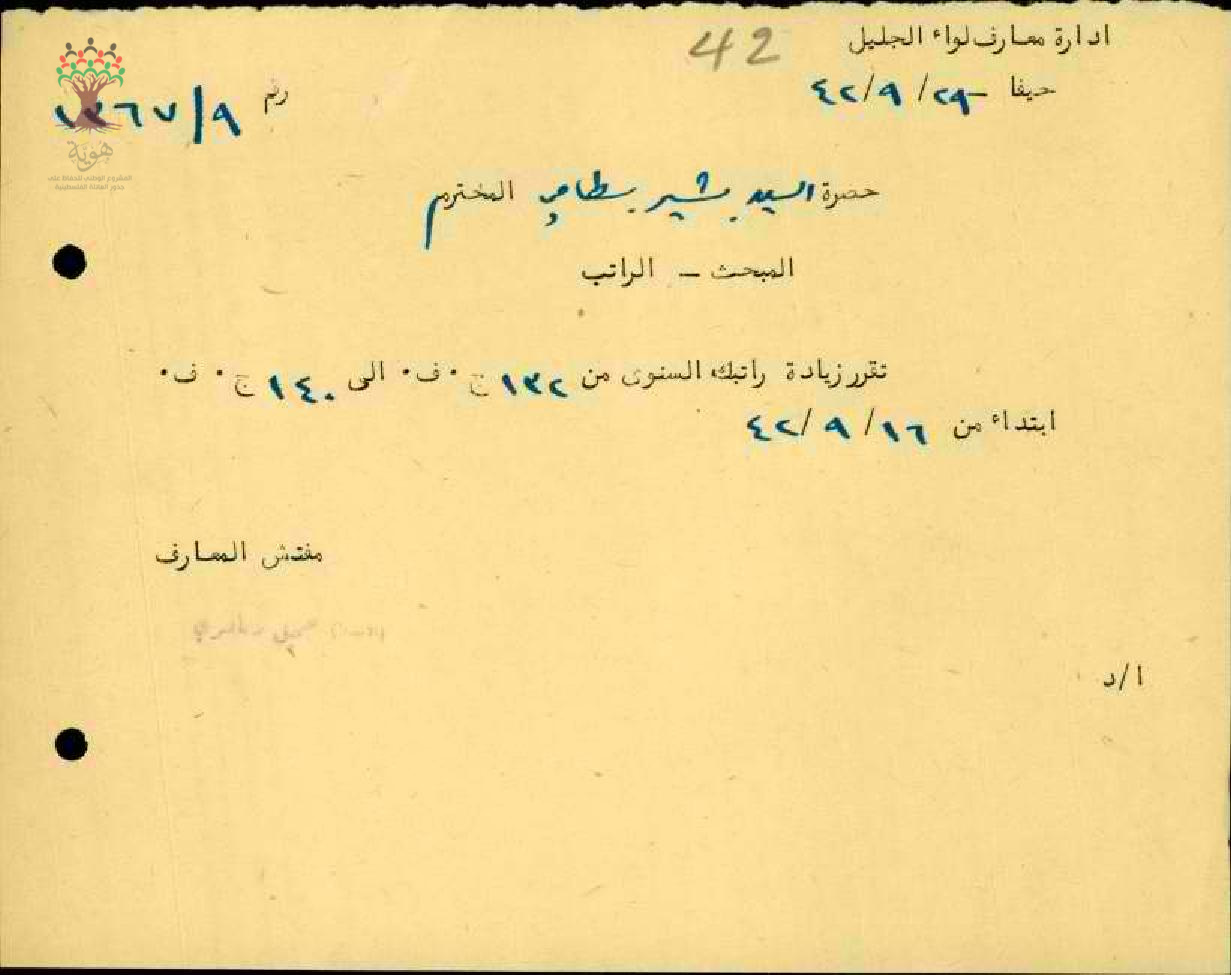 ادارة معارف لواء الجليل
42
حيفا ٢٩/٩/٤٢
رقم ١٣٦٧/٩
هوية
المشروع الوطني للحفاظ على
جذور العائلة الفلسطينية
حضرة السيد بشير المحترم
المبحث – الراتب
تقرر زيادة راتبك السنوى من ١٣٢ ج٠ف٠ الى ١٤٠ ج٠ف٠
ابتداء من ١٦/٩/٤٢
مفتش المعارف
جميل
ا/د